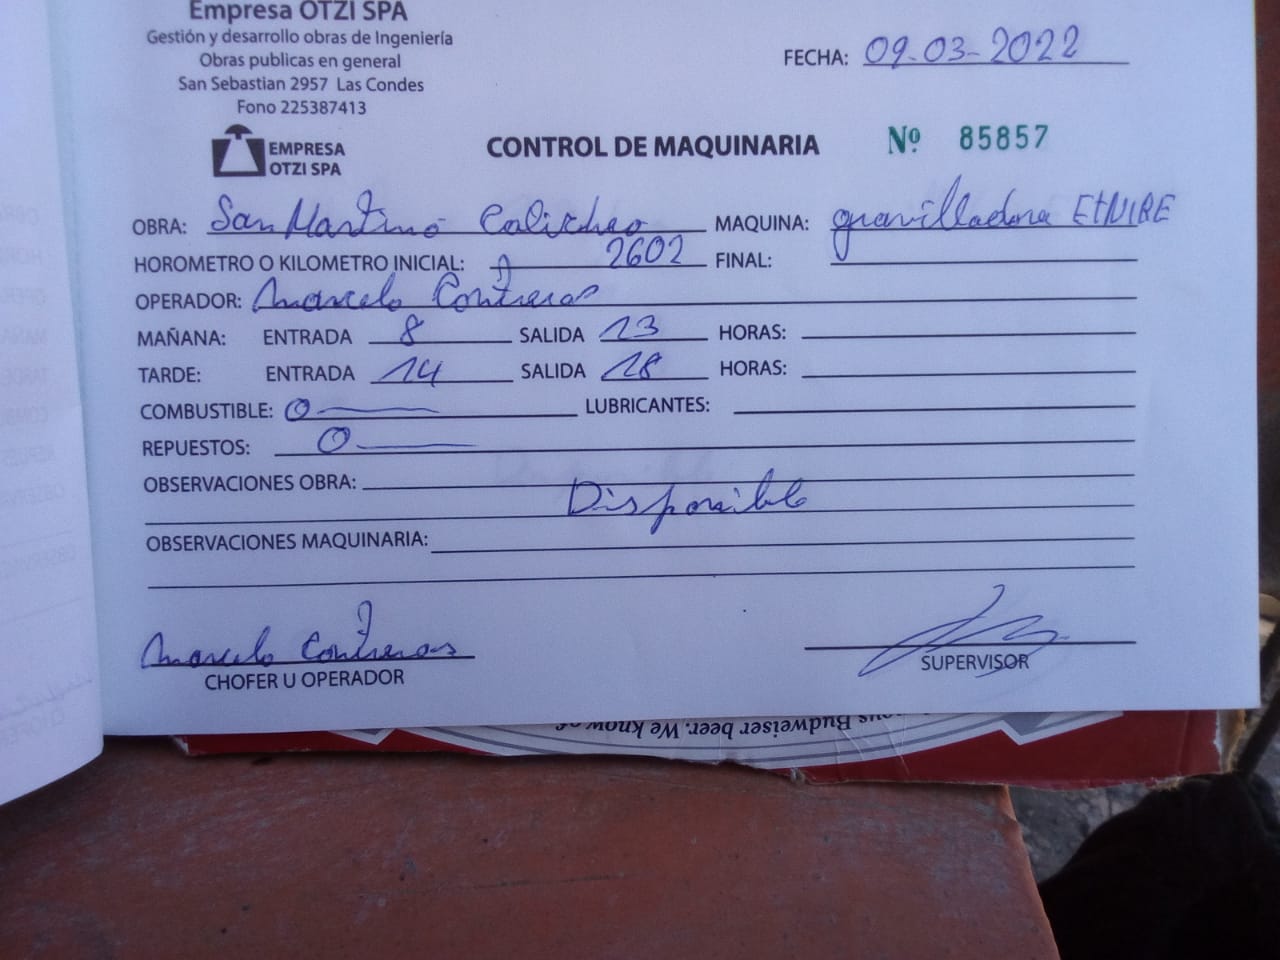 Empresa OTZI SPA
Gestión y desarrollo obras de Ingeniería
Obras publicas en general
San Sebastian 2957 Las Condes
Fono 225387413
FECHA: 09-03-2022
EMPRESA
OTZI SPA
CONTROL DE MAQUINARIA Nº 85857
OBRA: San Martino MAQUINA: gravilladora
HOROMETRO O KILOMETRO INICIAL: 2602 FINAL:
OPERADOR: Marcelo Contreras
MAÑANA: ENTRADA 8 SALIDA 13 HORAS:
TARDE: ENTRADA 14 SALIDA 18 HORAS:
COMBUSTIBLE: 0 LUBRICANTES:
REPUESTOS: 0
OBSERVACIONES OBRA:
Disponible
OBSERVACIONES MAQUINARIA:
Marcelo Contreras
CHOFER U OPERADOR
SUPERVISOR
Budweiser beer. We know of